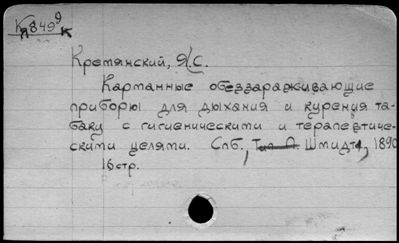 К 849 9
Я К
Кремянский, Я.С.
Карманные обеззараживающие
приборы для дыхания и курения та-
баку с гигиеническими и терапевтиче-
скими целями. Спб., Тип. П. Шмидта, 1890
16 стр.